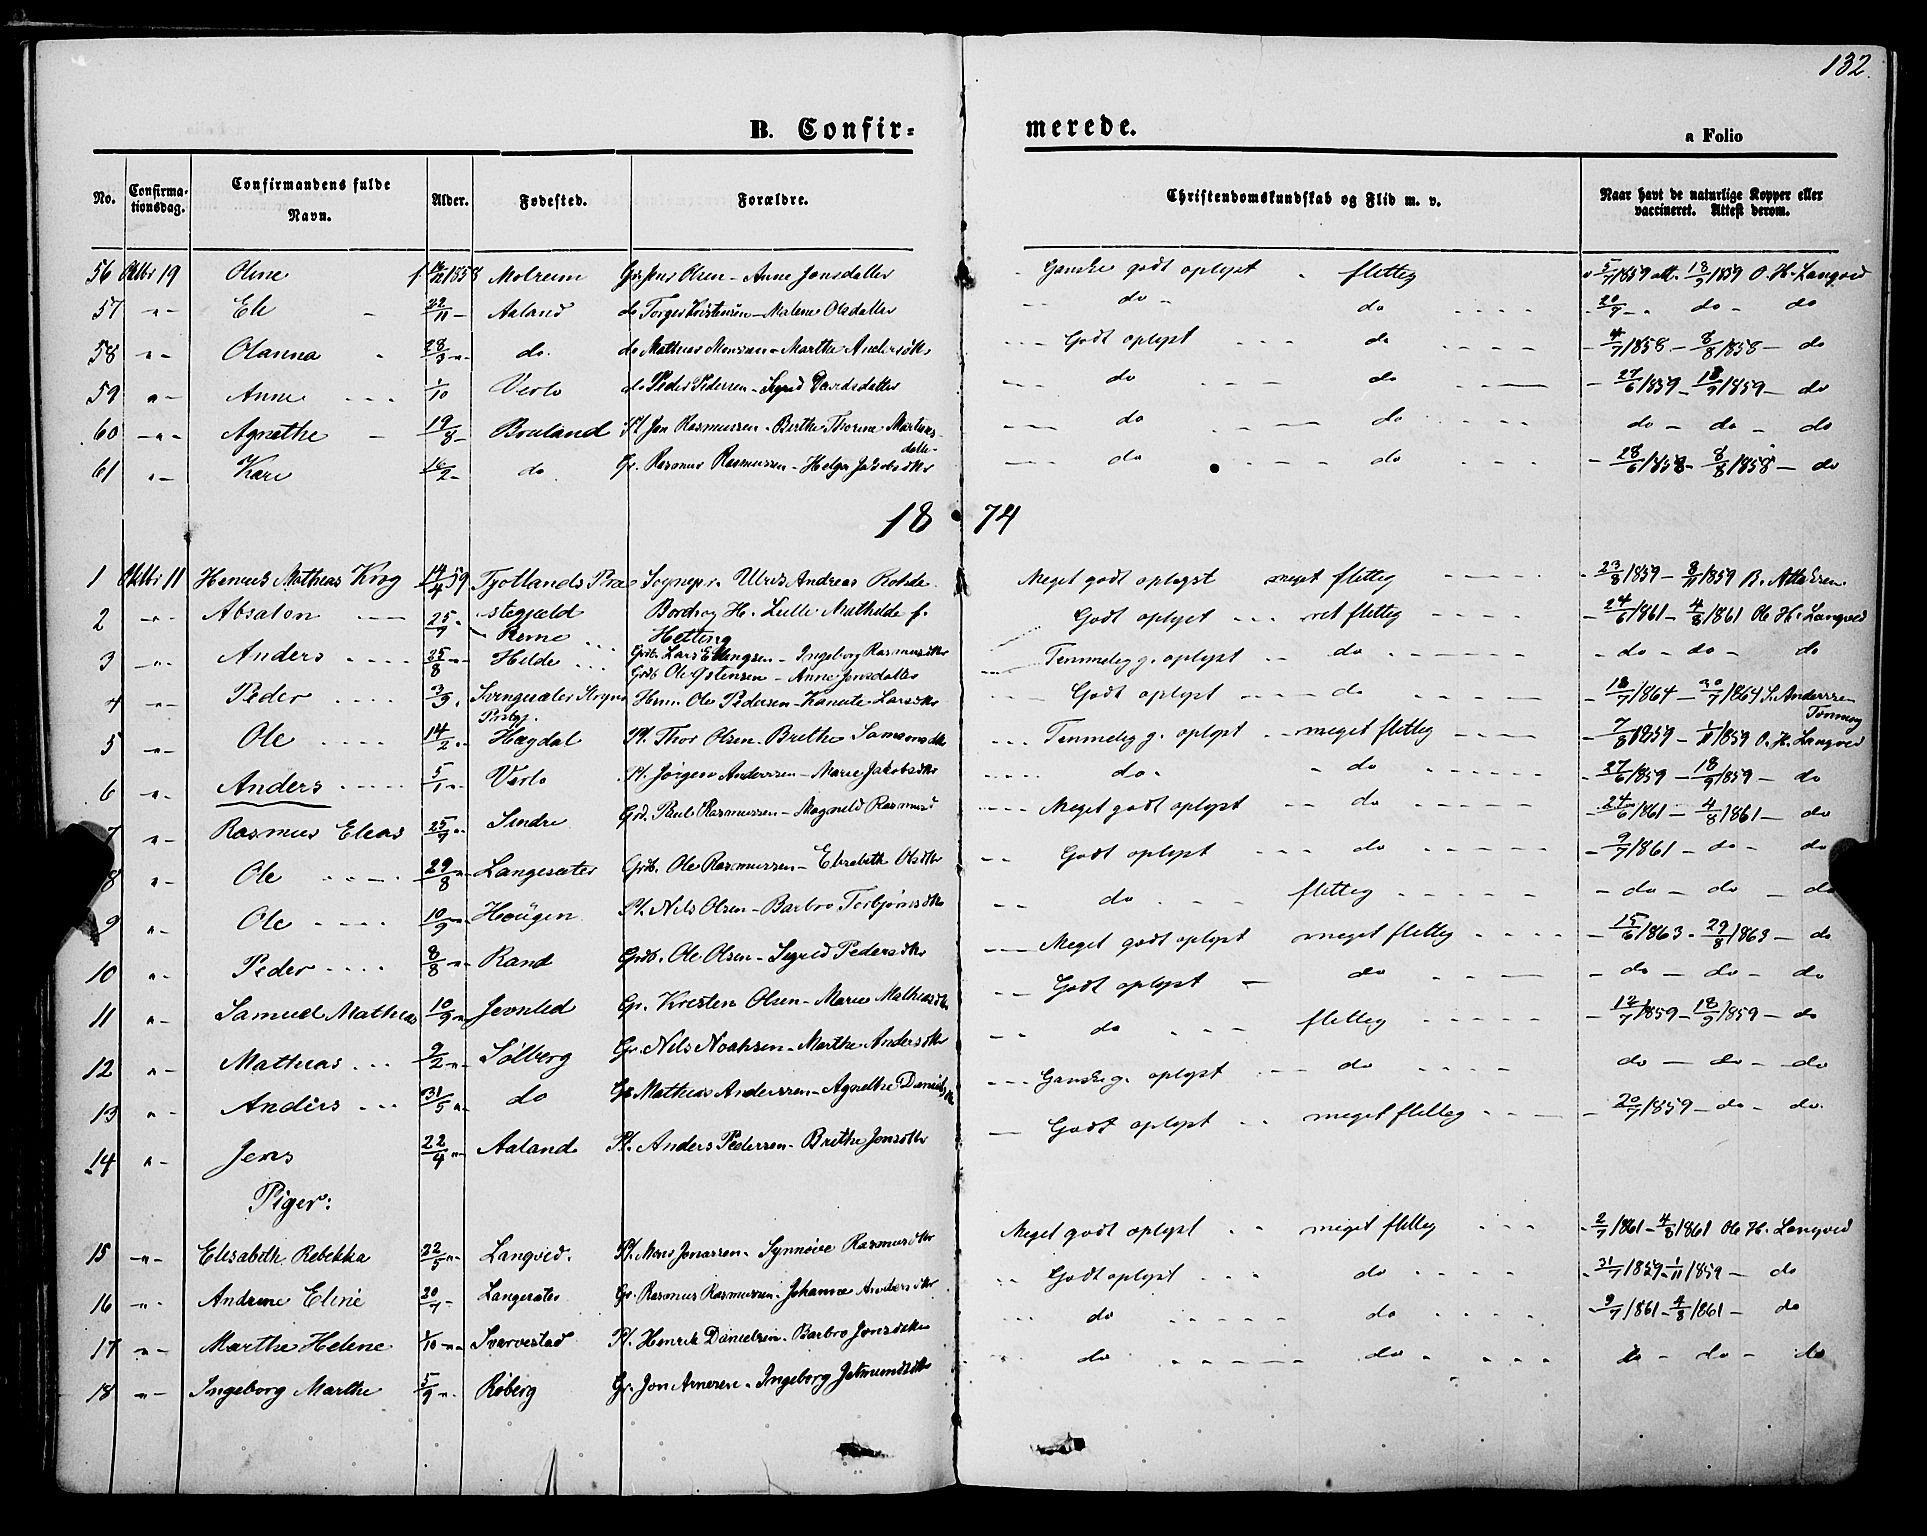 132.
B. Confirmerede.
a Folio
No. Confirmationsdag. Confirmandens fulde Navn. Alder. Fødested. Forældre. Christendomskundskab og Flid m. v. Naar havt de naturlige Kopper eller vaccineret. Attest derom.
56 Oktbr 19 Oline 1858 Molreim Gr. Jens Olsen - Anne Jonsdatter Ganske godt oplyst flittig 5/7 1859 att. 18/9 1859 O. H. Langved
57 " Eli 22/11 Aaland do Torger Kristensen - Malene Olsdatter do do 20/7 do do
58 " Olanna 28/3 do. do Mathias Monsen - Marthe Andersdtr Godt oplyst do 4/7 1858 - 8/8 1858 - do
59 " Anne 1/10 Verlo do Peder Pedersen - Sigrid Davidsdatter do do 27/6 1859 - 18/9 1859 - do
60 " Agnethe 19/8 Bruland Pl. Jon Rasmussen - Berthe Thorine Martinsdatter do do do - do - do
61 " Kari 16/2 do Gr. Rasmus Rasmussen - Helga Jakobsdtr do do 28/6 1858 - 8/8 1858 - do
1874
1 Oktbr 11 Mathias Krog 14/4 59 Tjotlands Præstegjæld Sognepr. Ulrik Andreas Rohde Bordrag H. Lulli Mathilde f. Hetting Meget godt oplyst meget flittig 23/8 1859 - 8/11 1859
2 " Absalon 25/7 Reme Grdb. Lars Ellingsen - Ingeborg Rasmusdtr Godt oplyst ret flittig 24/6 1861 - 4/8 1861 Ole H. Langved
3 " Anders 25/8 Helde Grdb. Ole Østensen - Anne Jensdatter Temmelig g. oplyst do do - do - do
4 " Peder 3/3 Prstgj. Hmd. Ole Pedersen - Kanute Larsdtr Godt oplyst do 18/7 1864 - 30/7 1864 S. Anderssen
5 " Ole 14/2 Hagdal Pl. Thor Olsen - Brithe Samsonsdtr Temmelig g. oplyst meget flittig 7/8 1859 - 1/11 1859 O. H. Langved
6 " Anders 5/1 Verlo Pl. Jørgen Anderssen - Marie Jakobsdtr do. do 27/6 1859 - 18/9 1859 - do
7 " Rasmus Elias 25/9 Sindre Grd. Paul Rasmussen - Magnild Rasmusd Meget godt oplyst do 24/6 1861 - 4/8 1861 - do
8 " Ole 29/8 Langesæter Grdb. Ole Rasmussen - Elisabeth Olsdtr Godt oplyst do 9/7 1861 - do - do
9 " Ole 10/9 Haugen Pl. Nils Olsen - Barbro Torbjørnsdtr do flittig do - do - do
10 " Peder 8/8 Rand Grdb. Ole Olsen - Sigrid Pedersdtr Meget godt oplyst meget flittig 15/6 1863 - 29/8 1863 - do
11 " Samuel Mathias 10/9 Jevnlid Gr. Kristen Olsen - Marie Mathiasdtr Godt oplyst do do - do - do
12 " Mathias 9/2 Sølberg Gr. Nils Noahsen - Marthe Andersdtr do flittig 12/7 1859 - 18/9 1859 - do
13 " Anders 31/5 do Gr. Mathias Anderssen - Agnethe Danielsdtr Ganske g. oplyst do do - do - do
14 " Jens 22/4 Aaland Pl. Anders Pedersen - Brithe Jonsdtr Godt oplyst meget flittig 20/7 1859 - do - do.
Piger:
15 " Elisabeth Rebekka 22/5 Langved. Pl. Mons Jonassen - Synnøve Rasmusdtr Meget godt oplyst meget flittig 2/7 1861 - 4/8 1861 Ole H. Langved
16 " Andrine Eline 20/7 Langesæter Gr. Rasmus Rasmussen - Johanne Andersdtr Godt oplyst do 31/7 1859 - 1/11 1859 - do
17 " Marthe Helene 1/10 Svarvestad Pl. Henrik Danielsen - Barbro Jonsdtr do do 9/7 1861 - 4/8 1861 - do
18 " Ingeborg Marthe 5/9 Røberg Gr. Jon Arnesen - Ingeborg Jetmundsdtr do do do - do - do